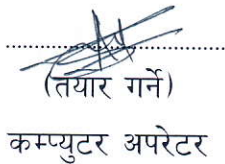 (तयार गर्ने)
कम्प्युटर अपरेटर